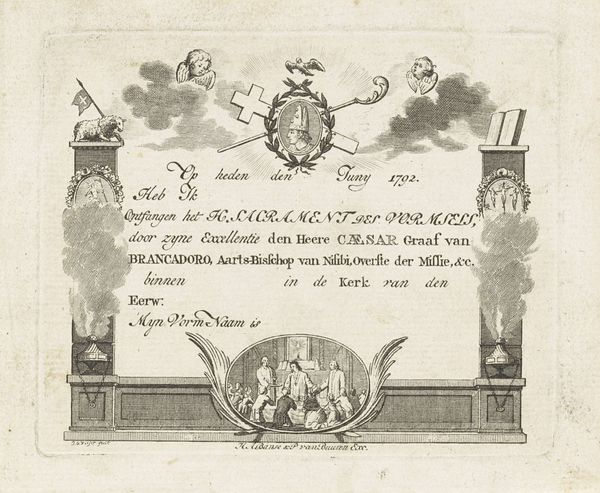 Op heden den Juny 1792.
Heb Ik
Ontfangen het H. SACRAMENT DES VORMSELS,
door zyne Excellentie den Heere CÆSAR Graaf van
BRANCADORO, Aarts-Bisschop van Nisibi, Overste der Missie, &c.
binnen in de Kerk van den
Eerw:
Myn Vorm Naam is
H. Albanse & P. van Buuren Exc.